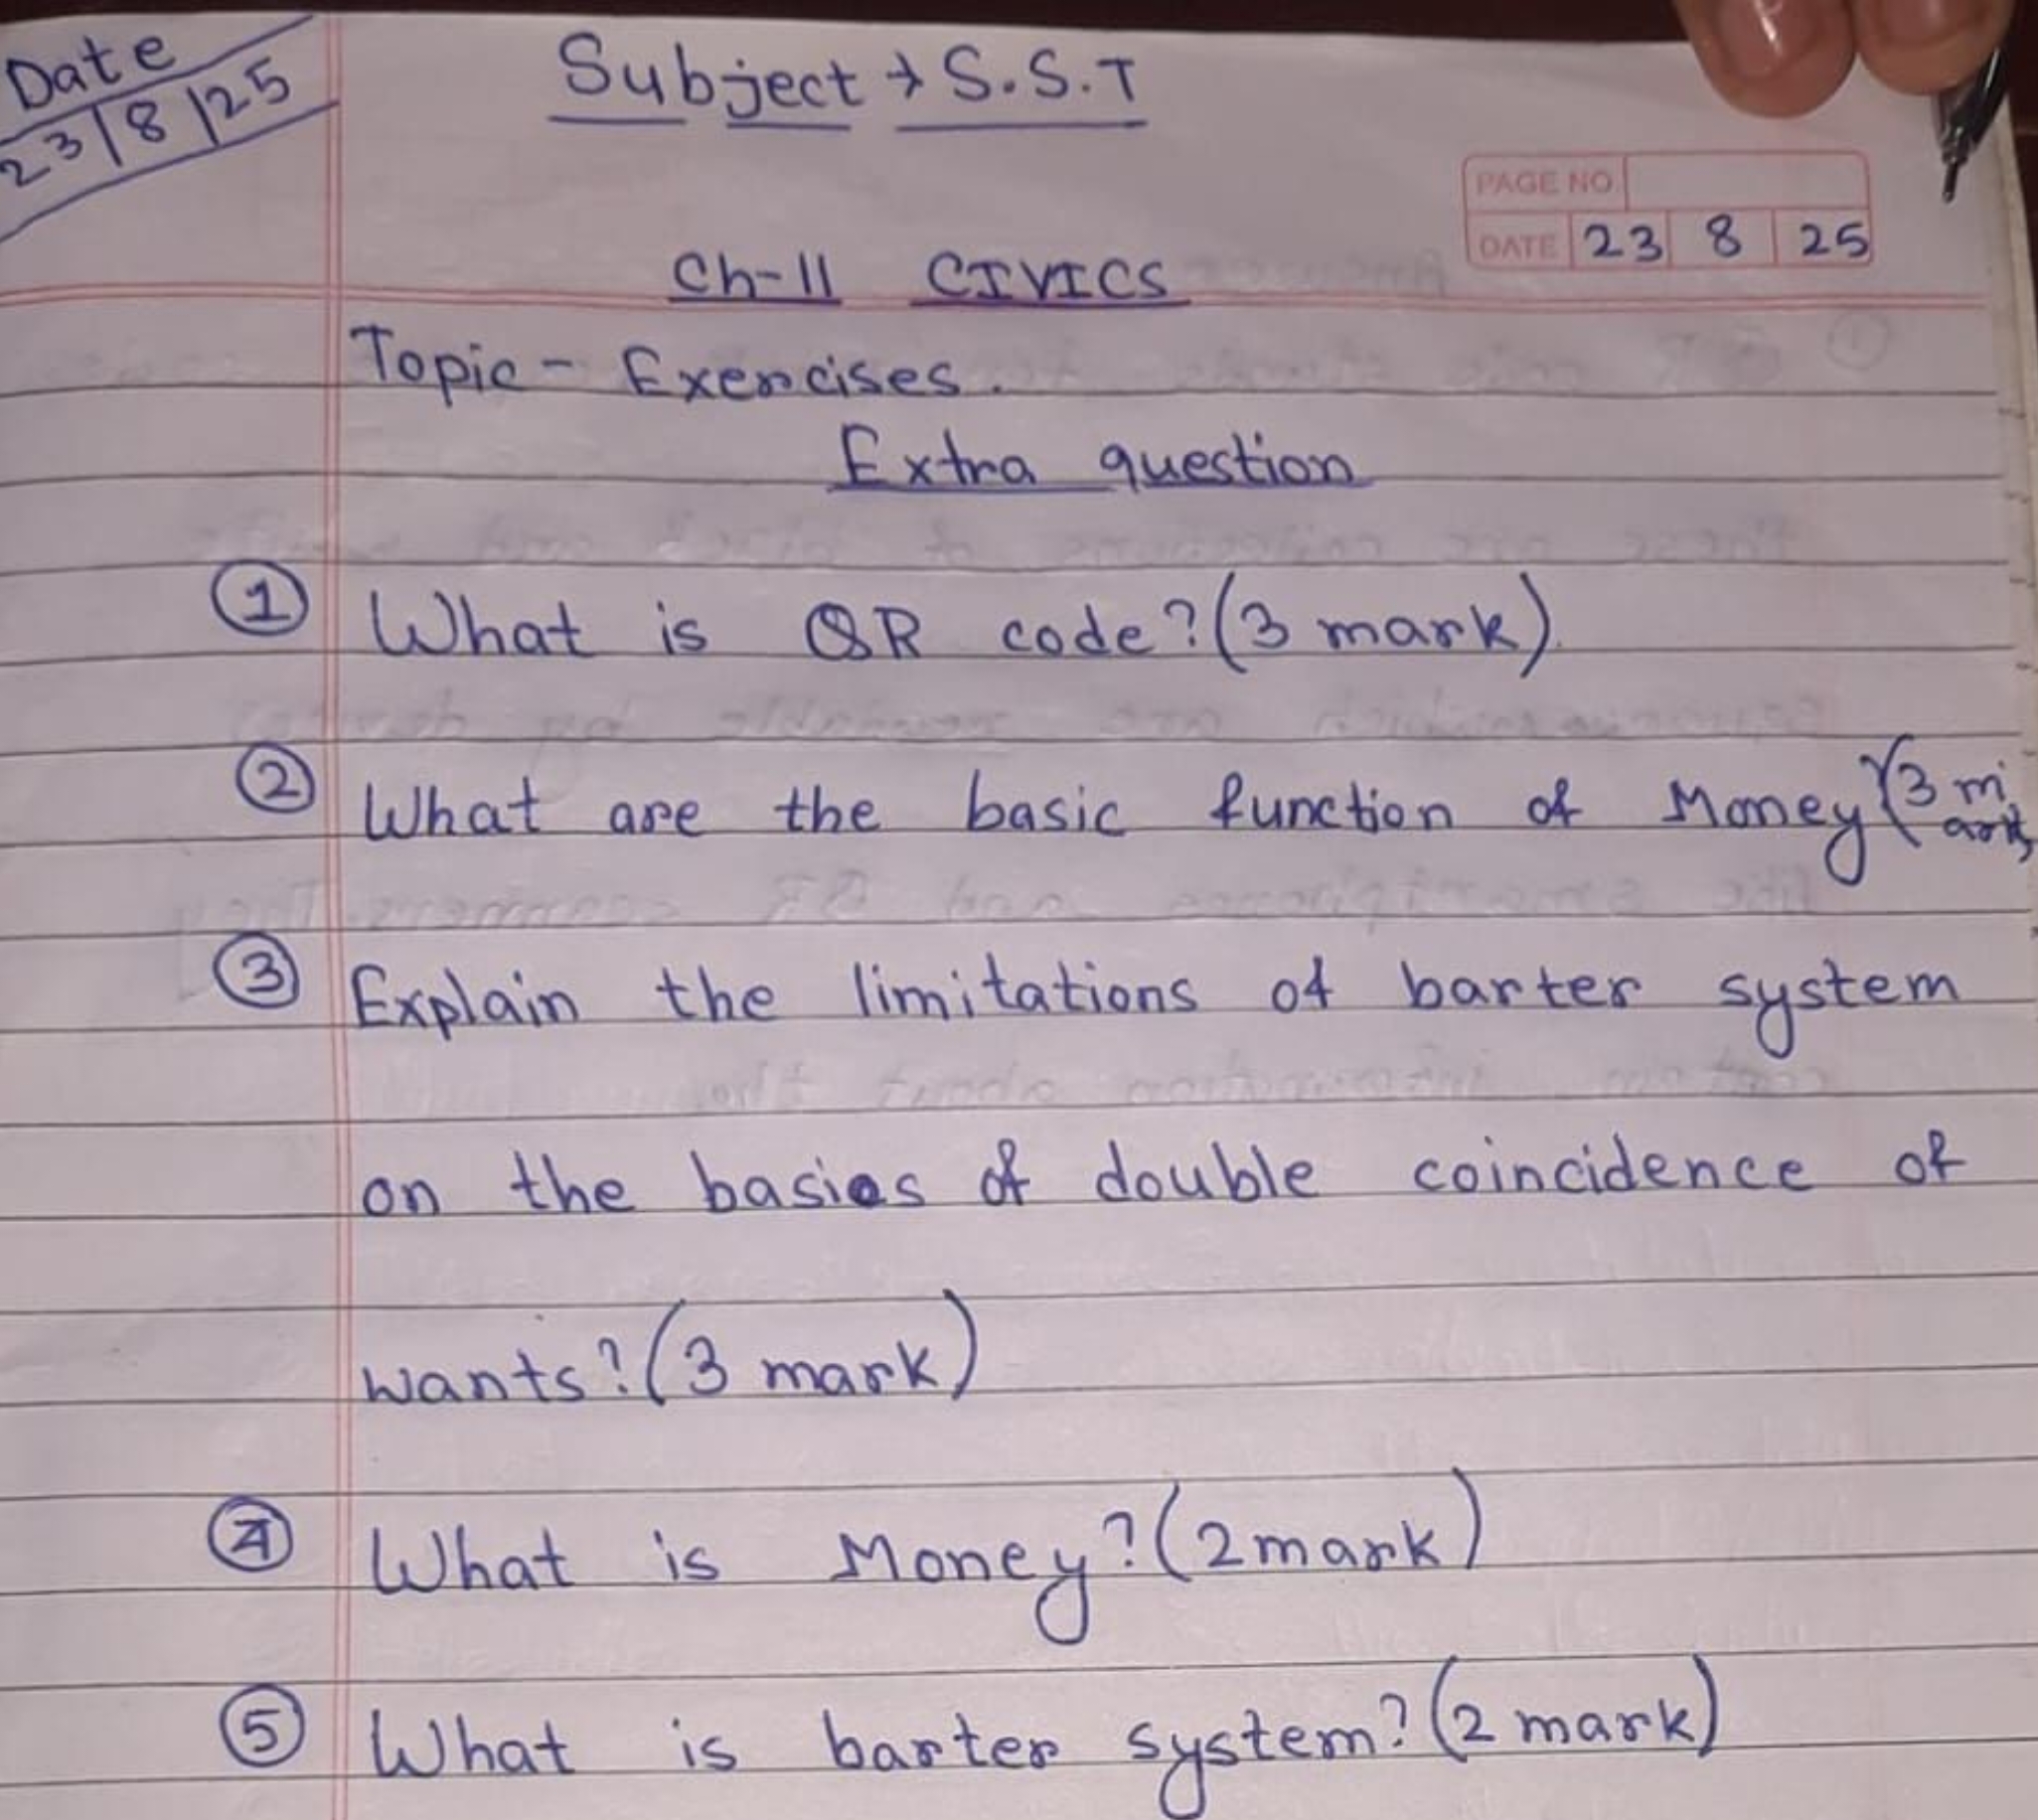 Date
23/8/25
Subject → S.S.T
PAGE NO
DATE 23 8 25
Ch-11 CIVICS
Topic - Exercises.
Extra question
① What is QR code? (3 mark).
② What are the basic function of Money (3 mark)
③ Explain the limitations of barter system
on the basis of double coincidence of
wants? (3 mark)
④ What is Money? (2 mark)
⑤ What is barter system? (2 mark)